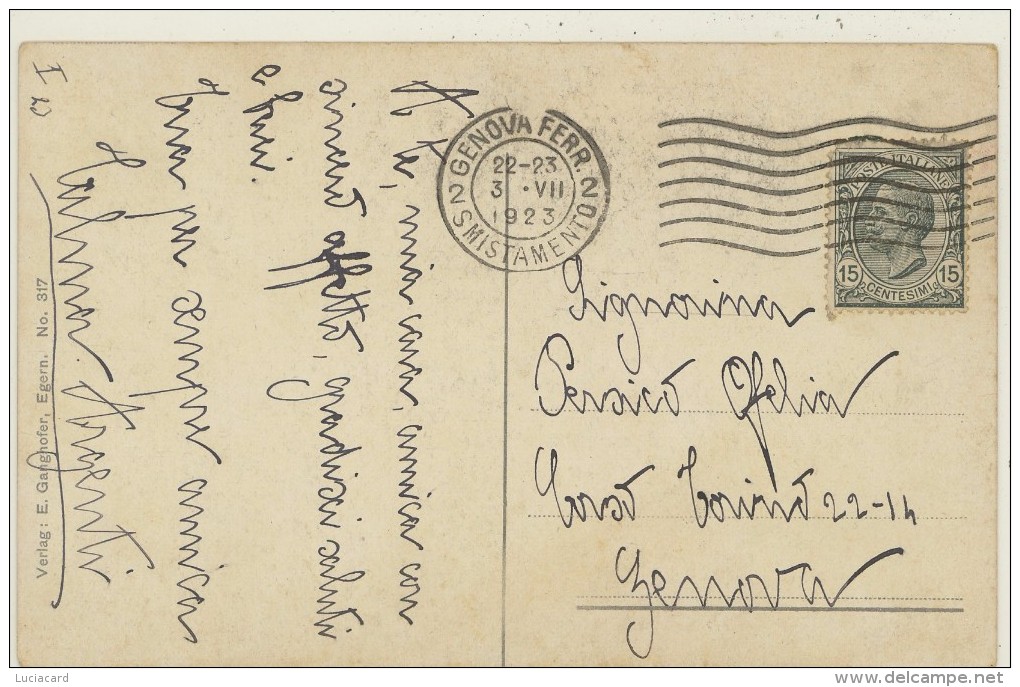 A te, mia cara, amica con
sincero affetto, gradisci saluti
e baci.
tua per sempre amica
I W
Verlag: E. Ganghofer, Egern. No. 317
GENOVA FERR.
22-23
3 · VII
1923
2 SMISTAMENTO 2
POSTE ITALIANE
15 15
CENTESIMI
Signorina
Persico Ofelia
Corso Torino 22-14
Genova
Luciacard
delcampe.net